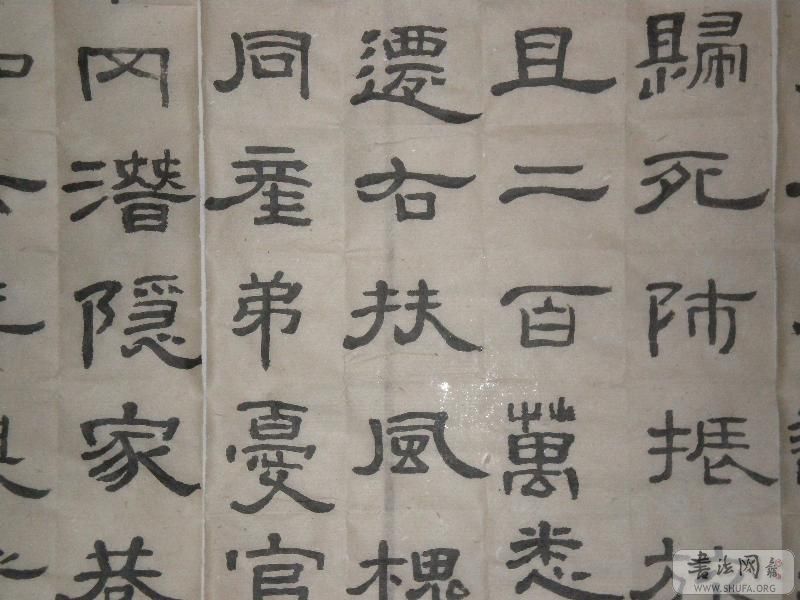 歸死師振旅
且二百萬悉
遷右扶風槐
同產弟憂官
网潛隱家巷
書法网
WWW.SHUFA.ORG